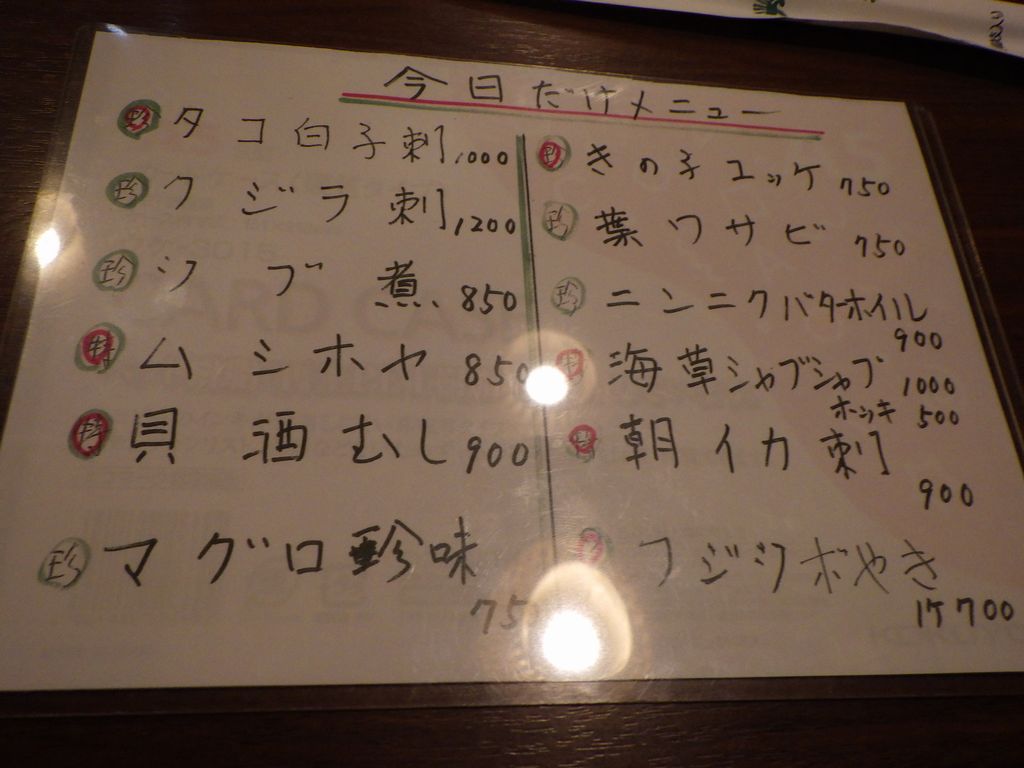 今日だけメニュー
珍 タコ白子刺 1000
珍 クジラ刺 1200
珍 ツブ煮 850
特 ムシホヤ 850
特 貝酒むし 900
珍 マグロ珍味
75
珍 きの子ユッケ 750
珍 葉ワサビ 750
珍 ニンニクバターホイル
900
特 海草シャブシャブ 1000
ホッキ 500
特 朝イカ刺
900
フジツボやき
1ケ700